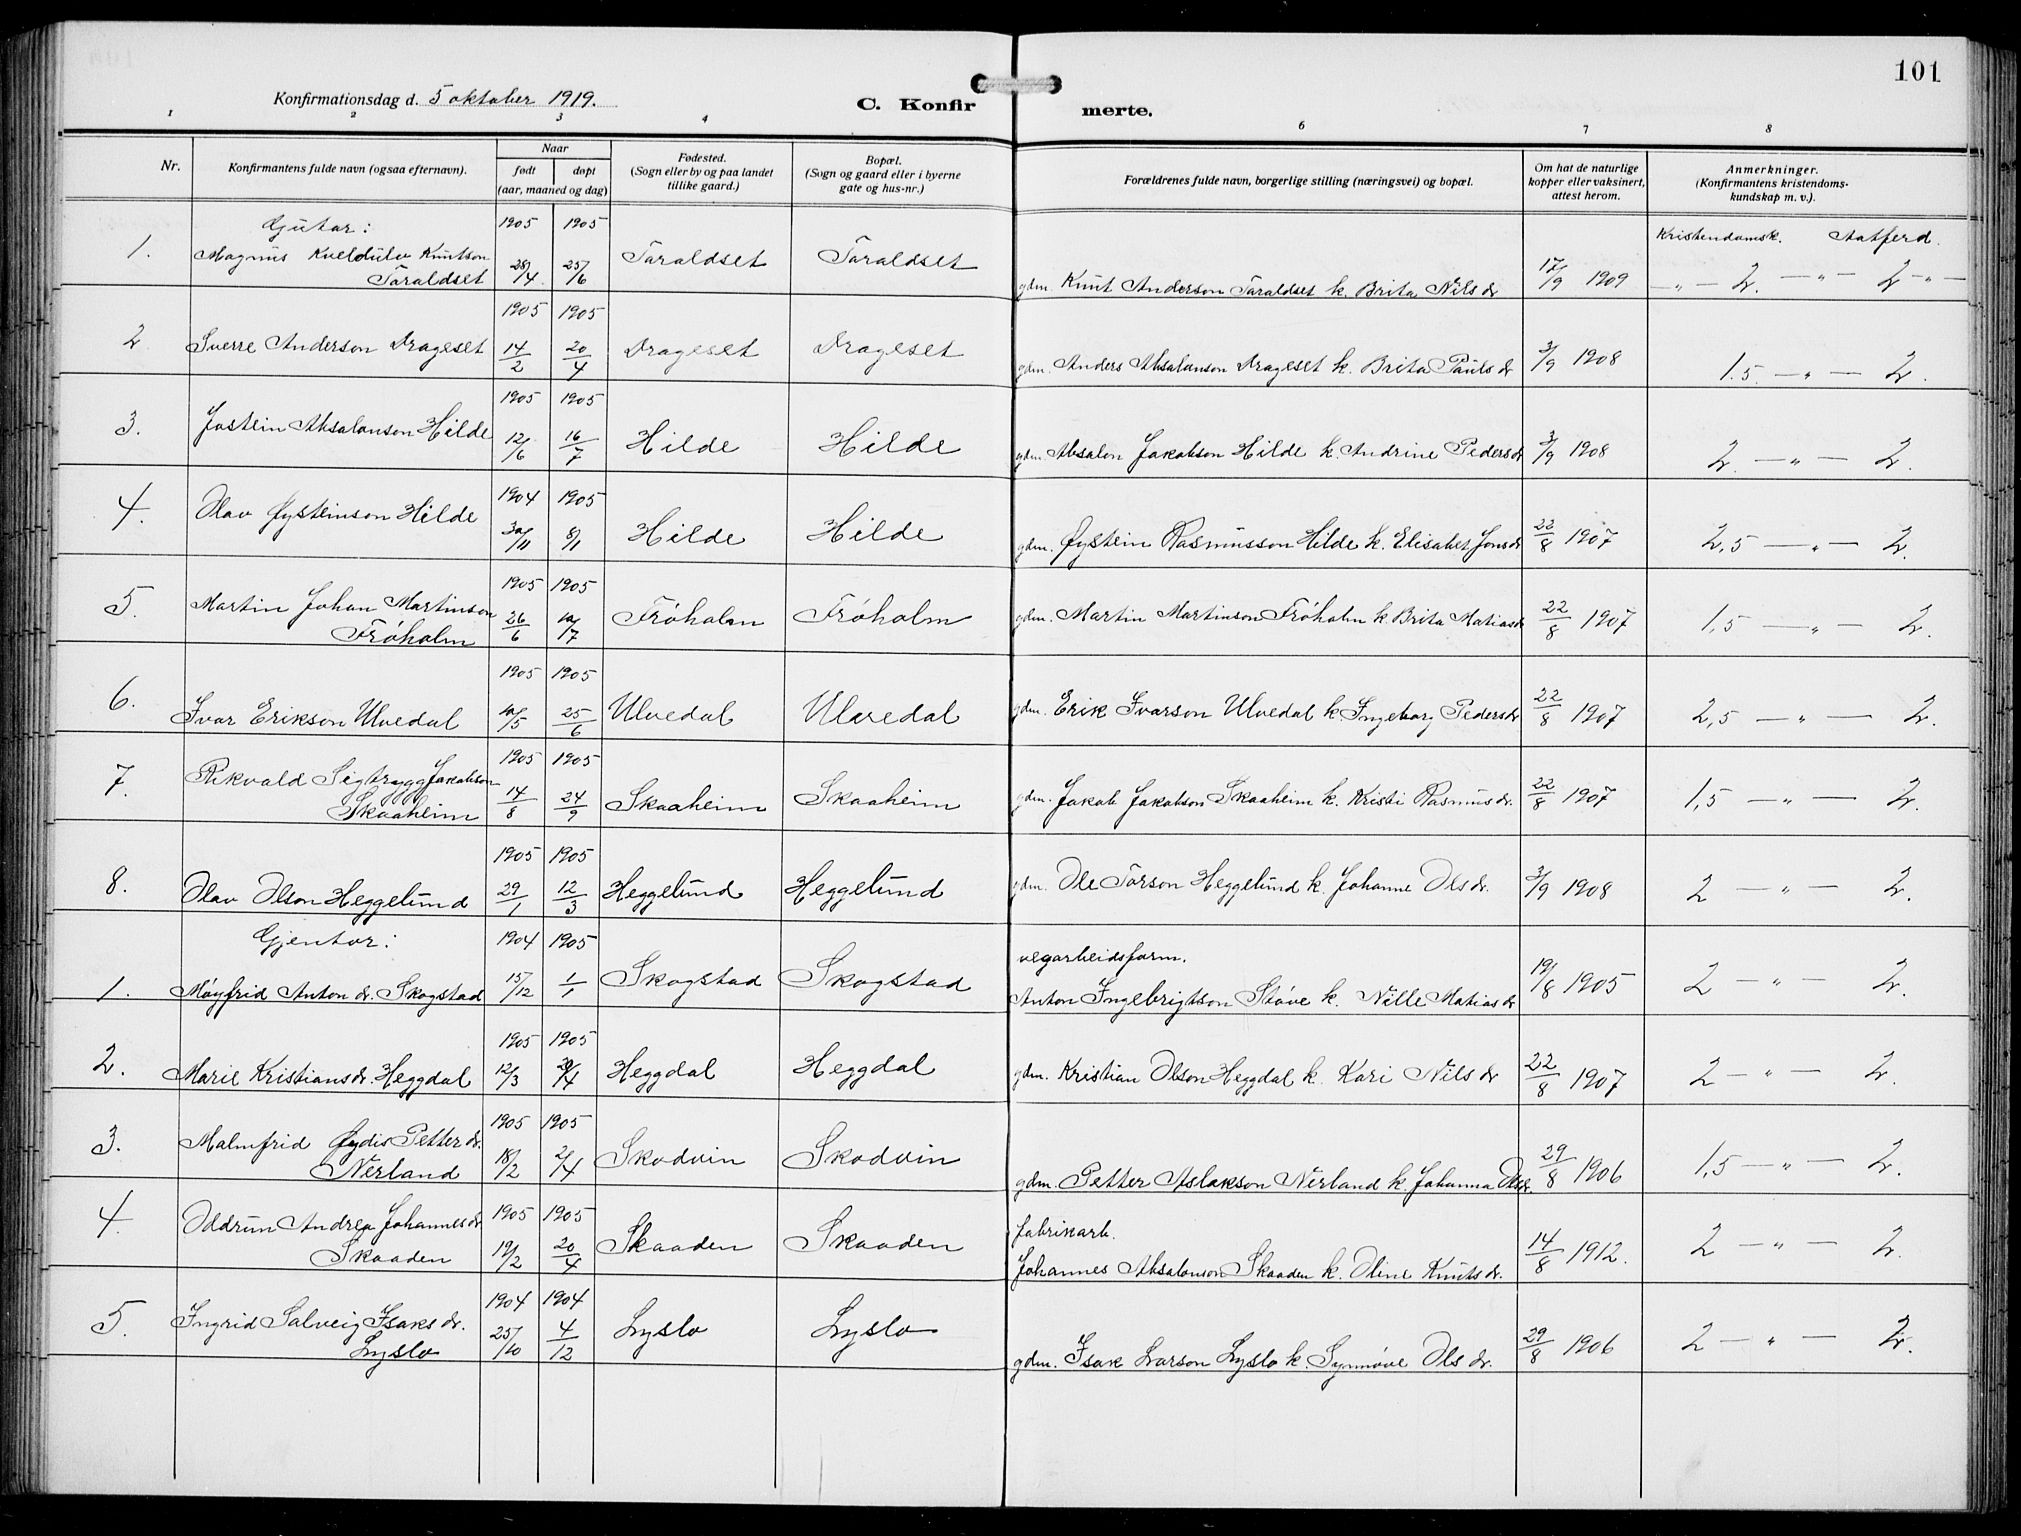 101
Konfirmationsdag d. 5 oktober 1919.
C. Konfirmerte.
1 2 3 4 6 7 8
Nr.
Konfirmantens fulde navn (ogsaa efternavn).
Naar
født døpt
(aar, maaned og dag)
Fødested.
(Sogn eller by og paa landet
tillike gaard.)
Bopæl.
(Sogn og gaard eller i byerne
gate og hus-nr.)
Forældrenes fulde navn, borgerlige stilling (næringsvei) og bopæl.
Om hat de naturlige
kopper eller vaksinert,
attest herom.
Anmerkninger.
(Konfirmantens kristendoms-
kundskap m. v.).
Gutar: 1905 1905 Kristendomsk. Aatferd.
1. Magnus Kveldulv Knutson
Taraldset 28/4 25/6 Taraldset Taraldset gdm. Knut Anderson Taraldset k. Brita Nils dr 17/9 1909 — " — 2. — " — 2 — " —
1905 1905
2 Sverre Anderson Drageset 14/2 20/4 Drageset Drageset gdm. Anders Absalonson Drageset k. Brita Pauls dr 3/9 1908 1.5. — " — 2.
1905 1905
3. Jostein Absalonson Hilde 12/6 16/7 Hilde Hilde gdm. Absalon Jakobson Hilde k. Andrine Peders dr 3/9 1908 2. — " — 2.
1904 1905
4. Olav Øysteinson Hilde 30/11 8/1 Hilde Hilde gdm. Øystein Rasmusson Hilde k. Elisabet Jons dr 22/8 1907 2,5 — " — 2.
1905 1905
5. Martin Johan Martinson
Frøholm 26/6 /7 Frøholm Frøholm gdm. Martin Martinson Frøholm k. Brita Matias dr 22/8 1907 1,5 — " — 2.
1905 1905
6. Ivar Erikson Ulvedal /5 25/6 Ulvedal Ulvedal gdm. Erik Ivarson Ulvedal k. Ingeborg Peders dr 22/8 1907 2,5 — " — 2.
1905 1905
7. Rikvald Sigtrygg Jakobson
Skaaheim 14/8 24/9 Skaaheim Skaaheim gdm. Jakob Jakobson Skaaheim k. Kristi Rasmus dr. 22/8 1907 1,5 — " — 2.
1905 1905
8. Olav Olson Heggelund 29/1 12/3 Heggelund Heggelund gdm. Ole Torson Heggelund k. Johanne Ols dr. 3/9 1908 2 — " — 2.
Gjentor: 1904 1905
1. Møyfrid Anton dr. Skogstad 15/12 1/1 Skogstad Skogstad vegarbeidsform.
Anton Ingebrigtson Støve k. Nille Matias dr 19/8 1905 2 — " — 2.
1905 1905
2. Marie Kristians dr. Heggdal 12/3 /4 Heggdal Heggdal gdm. Kristian Olson Heggdal k. Kari Nils dr 22/8 1907 2 — " — 2.
1905 1905
3. Malmfrid Øydis Petter dr.
Nerland 18/2 2/4 Skodvin Skodvin gdm. Petter Aslakson Nerland k. Johanna Ols dr. 29/8 1906 1,5 — " — 2.
1905 1905
4. Oddrun Andrea Johannes dr
Skaaden 19/2 20/4 Skaaden Skaaden fabrikarb.
Johannes Absalonson Skaaden k. Oline Knuts dr. 14/8 1912. 2 — " — 2.
1904 1904
5. Ingrid Solveig Isaks dr.
Lyslo 25/10 4/12 Lyslo Lyslo gdm. Isak Larson Lyslo k. Synnøve Ols dr. 29/8 1906 2 — " — 2.